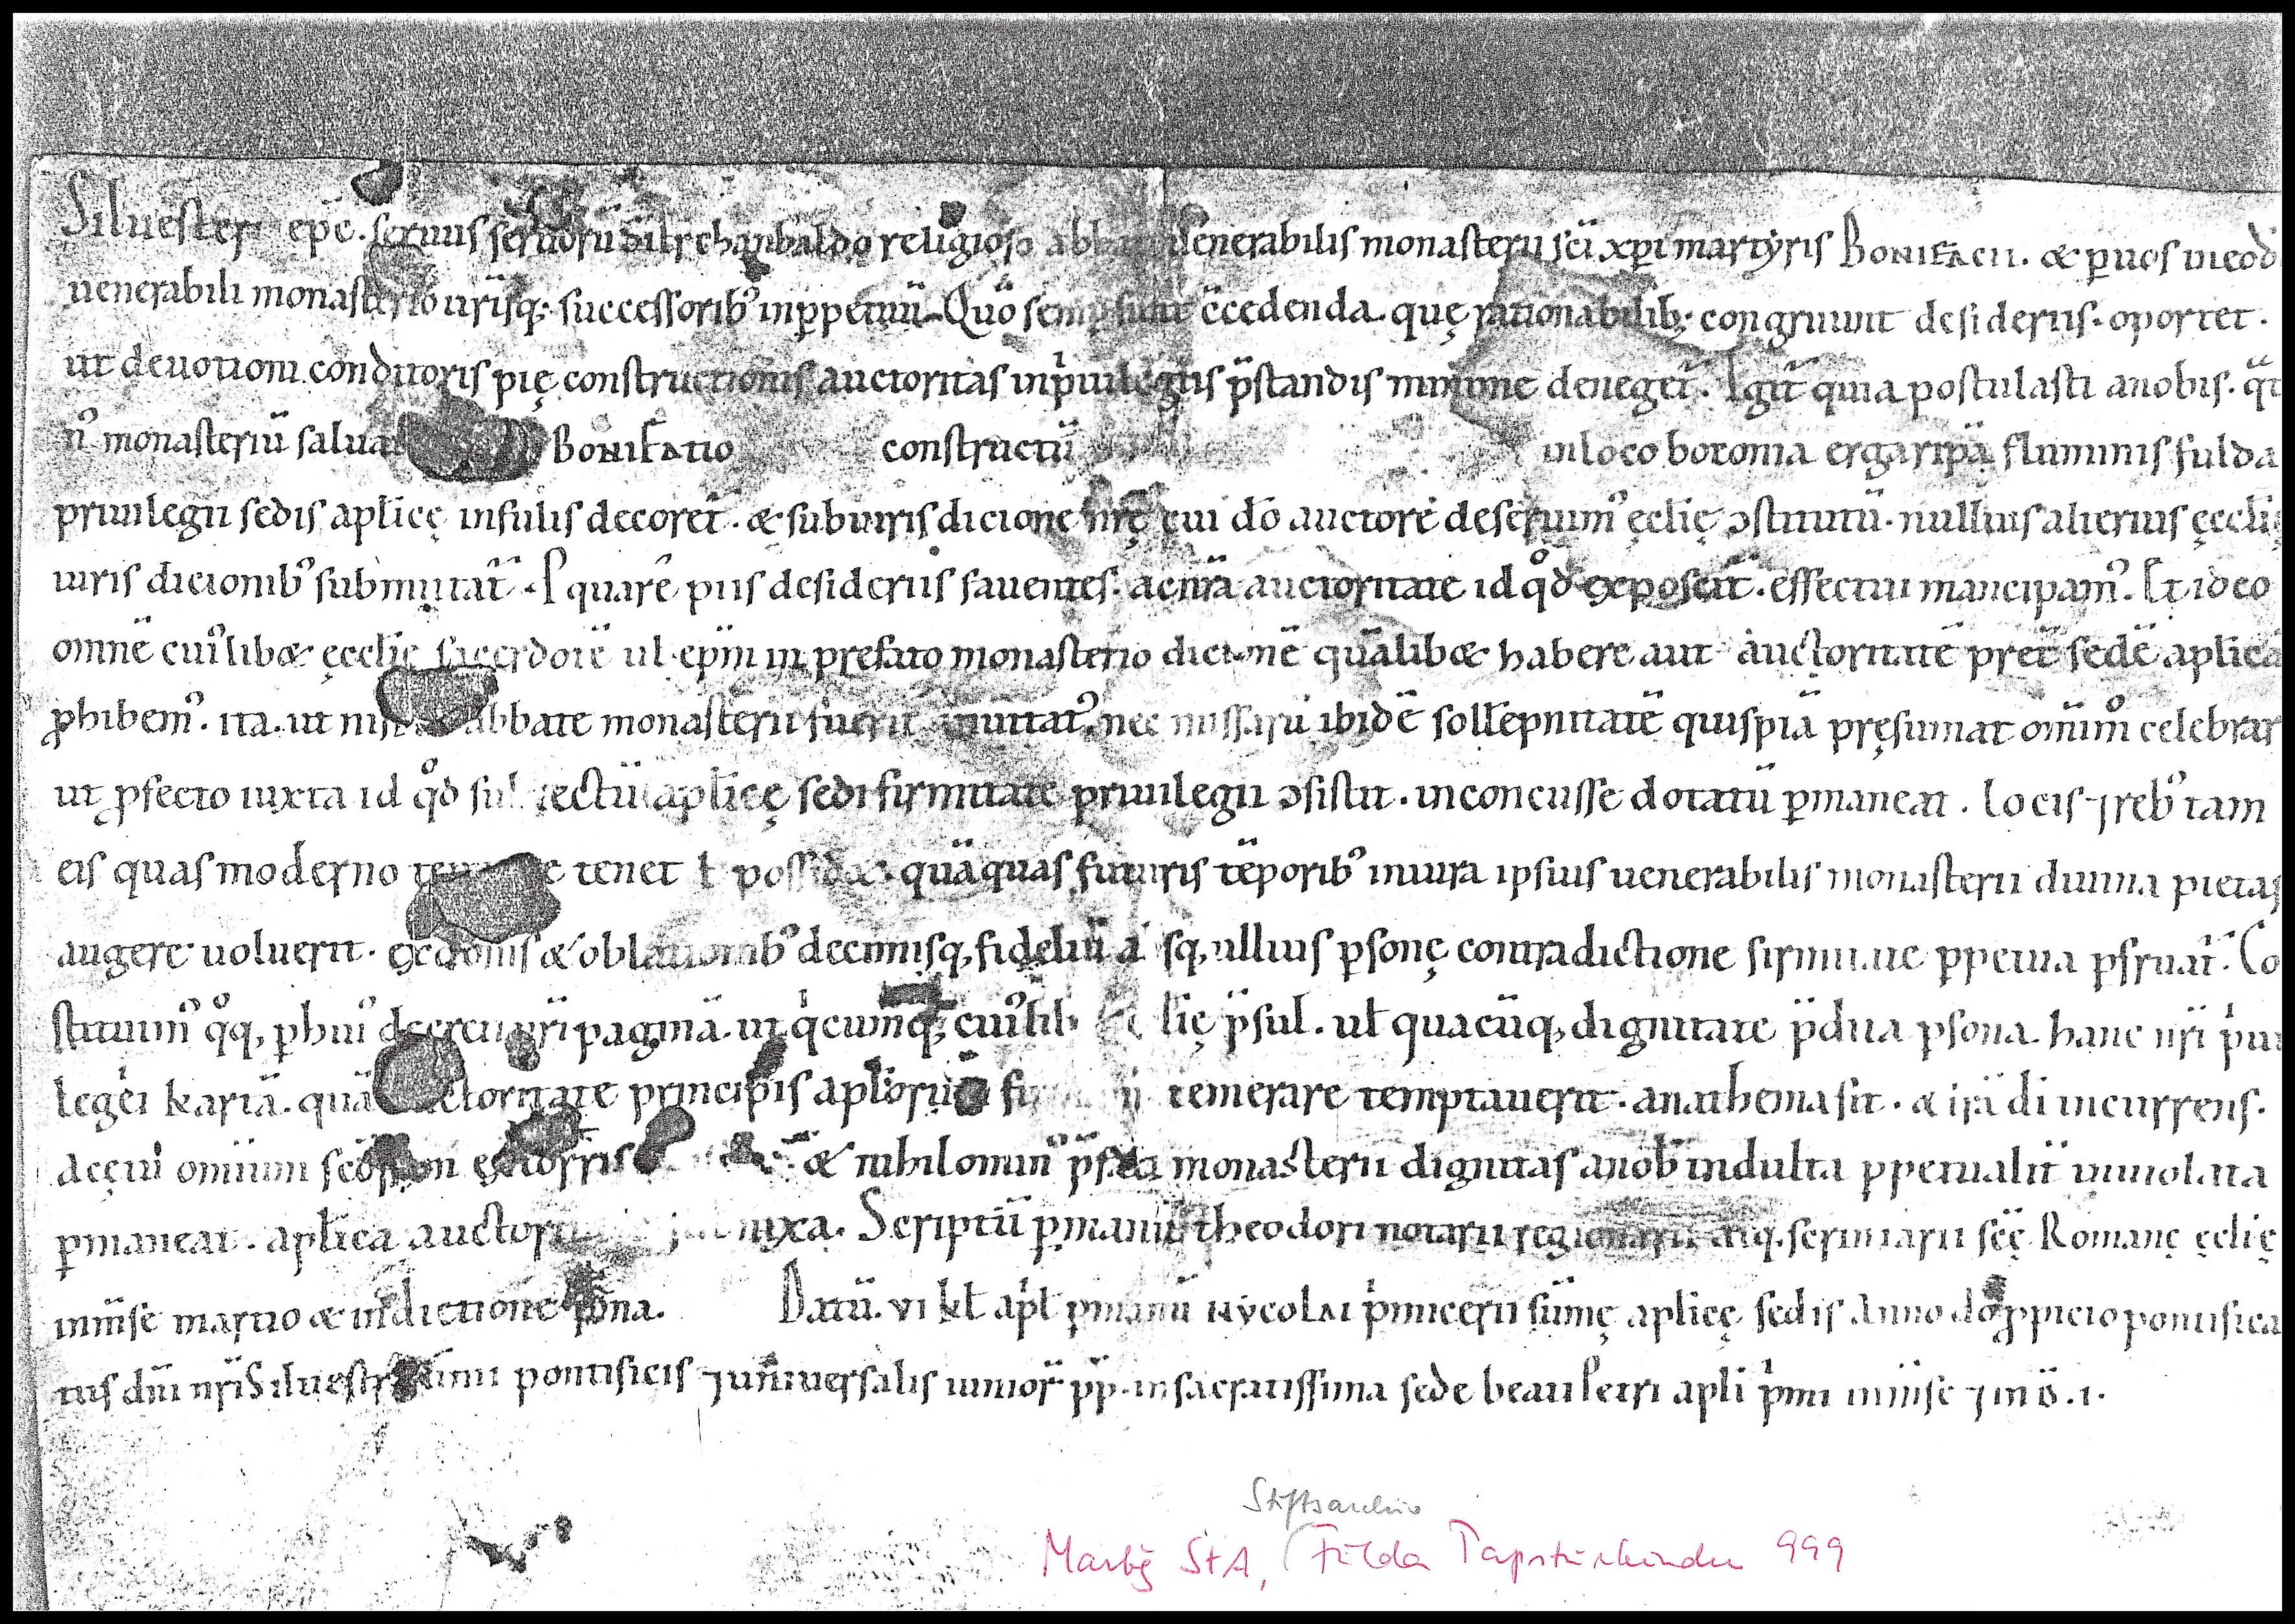 Siluester ep̄c. seruus seruorū dī erchanbaldo religioso abbati uenerabilis monasterii s̄ci xp̄i martyris Bonifacii. & p̱ uos ineod
uenerabili monasterio ur̄isq; successorib᾽ inp̱petuū. Quō semp̱ sunt c̄cedenda. quę rationabilib; congruunt desideriis. oportet.
ut deuotioni conditoris pię constructionis auctoritas inp̍uilegiis p̄standis minime deneget᷑. Igit᷑ quia postulasti anobis. q̄t
n᾽ monasteriū Bonifatio constructū inloco boconia ergaripā fluminis fulda
priuilegii sedis aplicę insulis decoret᷑. & subiuris dicione nr̄ę cui dō auctore deseruim᾽ ęclię ↄstitutū. nullius alterius ęcclię
iuris dicionib᾽ submittat᷑. P quare piis desideriis fauentes. acnr̄a auctoritate id qd̊ exposcit᷑. effectui mancipam᾽. Et ideo
omnē cui᾽lib& ęcclię sacerdotē ul ep̄m in prefato monasterio dicionē quālib& habere aut auctoritatē pret᷑ sedē aplicā
ꝓhibem᾽. ita. ut nisi abbate monasterii fuerit inuitat᾽, nec missarū ibidē sollēpnitatē quispiā pręsumat om̄im̊ celebrar
ut ꝓfecto iuxta id qd̊ subiectū aplicę sedi firmitate priuilegii ↄsistit. inconcusse dotatū p̱maneat. locis ⁊ reb᾽ tam
eis quas moderno tempore tenet ł possid&. quāquas futuris tēporib᾽ iniura ipsius uenerabilis monasterii diuina pietas
augere uoluerit. exdonis & oblationib᾽ decimisq, fideliū absq, ullius p̱sonę contradictione firmitate p̱petua p̱fruat᷑. Co
stituim᾽ q̊q, p̱ hui᾽ decreti nr̄i paginā. ut q̍cumq; cui᾽lib& ęcclię p̄sul. uł quacūq, dignitate p̄dita p̱sona. hanc nr̄i p̍ui
legęi kartā. quā auctoritate principis aplorū temerare temptauerit. anathema sit. & irā dī incurrens.
aęcui omnium sc̄oꝝ & nihilomin᾽ p̄fati monasterii dignitas anob᷑ indulta p̱petualit᷑ inuiolata
p̱maneat. aplica auctoritate subnixa. Scriptū p̱ manū theodori notarii regionarii atq. scriniarii sc̄ę Romanę ęclię
inm̄se martio & indictione bona. Datū. VI kł apł p̱ manū Nycolai p̍micerii sūmę aplicę sedis Anno dō ꝓpicio pontifica
tus dn̄i nr̄i Siluestri sūmi pontificis ⁊ uniuersalis iunior᷑ pp̄. insacratissima sede beati Petri apli p̍mi m̄se ⁊ inđ. I.
Stiftsarchiv
Marbg StA, Fulda Papsturkunden 999